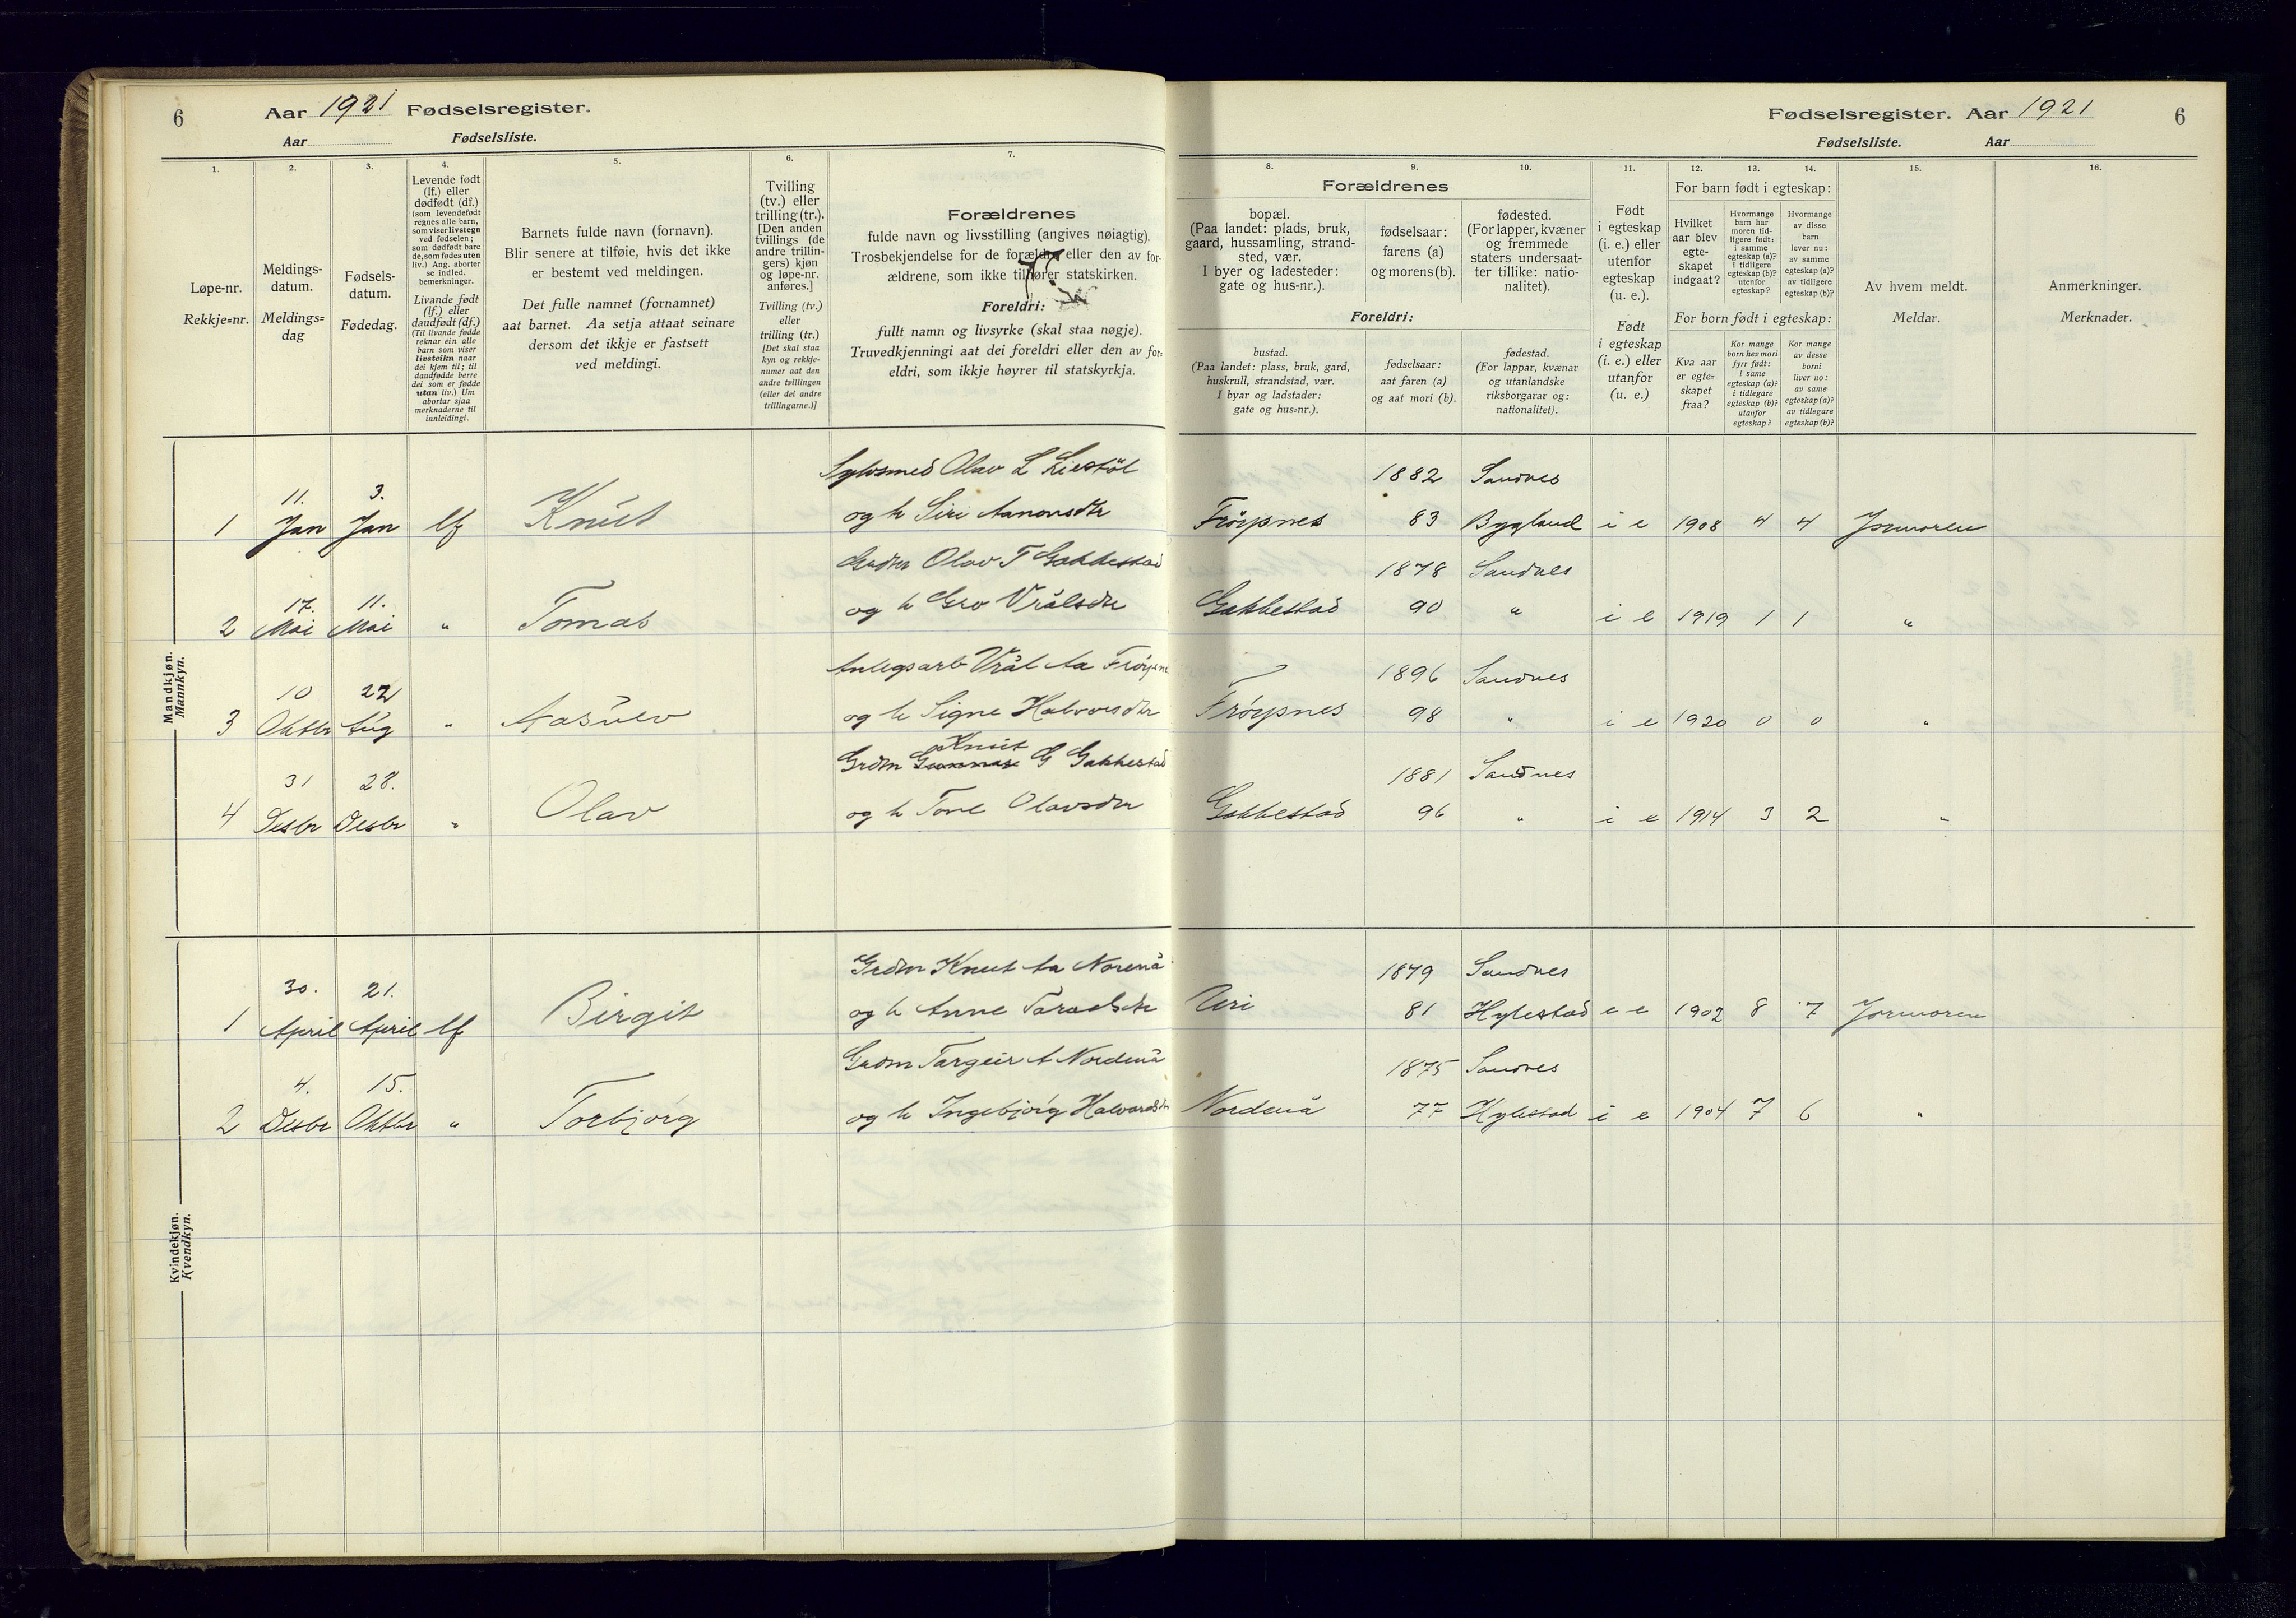 6 Aar 1921 Fødselsregister.
Aar Fødselsliste.
1. 2. 3. 4. 5. 6. 7.
Løpe-nr.
Rekkje=nr.
Meldings-
datum.
Meldings=
dag
Fødsels-
datum.
Fødedag.
Levende født
(lf.) eller
dødfødt (df.)
(som levendefødt
regnes alle barn,
som viser livstegn
ved fødselen;
som dødfødt bare
de, som fødes uten
liv.) Ang. aborter
se indled.
bemerkninger.
Livande født
(lf.) eller
daudfødt (df.)
(Til livande fødde
reknar ein alle
barn som viser
livsteikn naar
dei kjem til; til
daudfødde berre
dei som er fødde
utan liv.) Um
abortar sjaa
merknaderne til
innleidingi.
Barnets fulde navn (fornavn).
Blir senere at tilføie, hvis det ikke
er bestemt ved meldingen.
Det fulle namnet (fornamnet)
aat barnet. Aa setja attaat seinare
dersom det ikkje er fastsett
ved meldingi.
Tvilling
(tv.) eller
trilling (tr.).
[Den anden
tvillings (de
andre trillin-
gers) kjøn
og løpe-nr.
anføres.]
Tvilling (tv.)
eller
trilling (tr.)
[Det skal staa
kyn og rekkje-
numer aat den
andre tvillingen
(eller dei andre
trillingarne.)]
Forældrenes
fulde navn og livsstilling (angives nøiagtig).
Trosbekjendelse for de forældre eller den av for-
ældrene, som ikke tilhører statskirken.
Foreldri:
fullt namn og livsyrke (skal staa nøgje).
Truvedkjenningi aat dei foreldri eller den av for=
eldri, som ikkje høyrer til statskyrkja.
Mandkjøn.
Mannkyn.
Sylvsmed Olav L Liestöl
1 11. Jan 3. Jan lf Knut og h Siri Aanonsdtr
Grdm Olav T Gakkestad
2 17. Mai 11. Mai " Tomas og h Gro Vrålsdtr
Anlegsarb Vrål Aa Fröysnes
3 10 Oktbr 22 Aug " Aasulv og h Signe Halvorsdtr
Knut
Grdm Gunnar G Gakkestad
4 31 Desbr 28. Desbr " Olav og h Tone Olavsdtr
Kvindekjøn.
Kvendkyn.
Grdm Knut Aa Norenå
1 30. April 21. April lf Birgit og h Anne Taraldsdtr
Grdm Targeir A Nordenå
2 4. Desbr 15. Oktbr " Torbjörg og h Ingebjörg Halvorsdtr
Fødselsregister. Aar 1921 6
Fødselsliste. Aar
8. 9. 10. 11. 12. 13. 14. 15. 16.
Forældrenes
bopæl.
(Paa landet: plads, bruk,
gaard, hussamling, strand-
sted, vær.
I byer og ladesteder:
gate og hus-nr.).
fødselsaar:
farens (a)
og morens (b).
fødested.
(For lapper, kvæner
og fremmede
staters undersaat-
ter tillike: natio-
nalitet).
Foreldri:
bustad.
(Paa landet: plass, bruk, gard,
huskrull, strandstad, vær.
I byar og ladstader:
gate og hus=nr.).
fødselsaar:
aat faren (a)
og aat mori (b).
fødestad.
(For lappar, kvænar
og utanlandske
riksborgarar og:
nationalitet).
Født
i egteskap
(i. e.) eller
utenfor
egteskap
(u. e.).
Født
i egteskap
(i. e.) eller
utanfor
(u. e.)
For barn født i egteskap:
Hvilket
aar blev
egte-
skapet
indgaat?
Hvormange
barn har
moren tid-
ligere født:
i samme
egteskap (a)?
i tidligere
egteskap (b)?
utenfor
egteskap?
Hvormange
av disse
barn
lever nu:
av samme
egteskap (a)?
av tidligere
egteskap (b)?
For born født i egteskap:
Kva aar
er egte=
skapet
fraa?
Kor mange
born hev mori
fyrr født:
i same
egteskap (a)?
i tidlegare
egteskap (b)?
utanfor
egteskap?
Kor mange
av desse
borni
liver no:
av same
egteskap (a)?
av tidlegare
egteskap (b)?
Av hvem meldt.
Meldar.
Anmerkninger.
Merknader.
1882 Sandnes
Fröysnes 83 Bygland i e 1908 4 4 Jormoren
1878 Sandnes
Gakkestad 90 " i e 1919 1 1 "
1896 Sandnes
Fröysnes 98 " i e 1920 0 0 "
1881 Sandnes
Gakkestad 96 " i e 1914 3 2 "
1879 Sandnes
Uri 81 Hylestad e e 1902 8 7 Jormoren
1875 Sandnes
Nordenå 77 Hylestad i e 1904 7 6 "